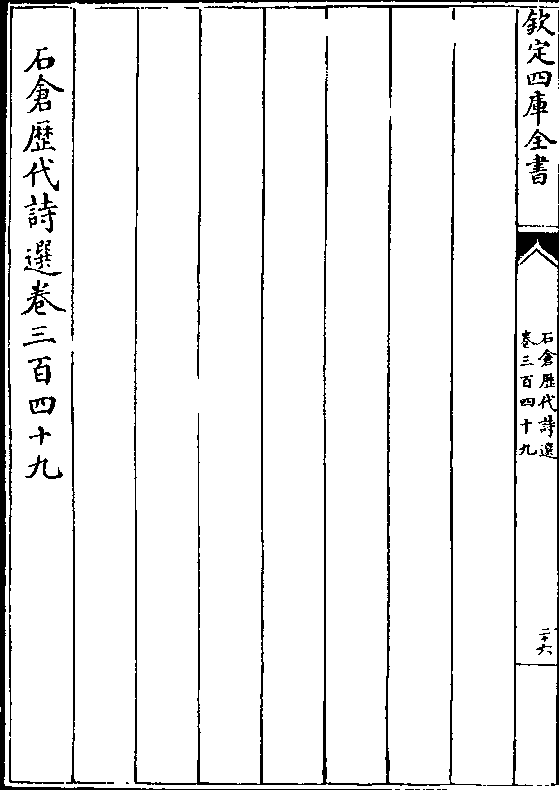 欽定四庫全書
石倉歷代詩選
卷三百四十九
二十六
石倉歷代詩選卷三百四十九